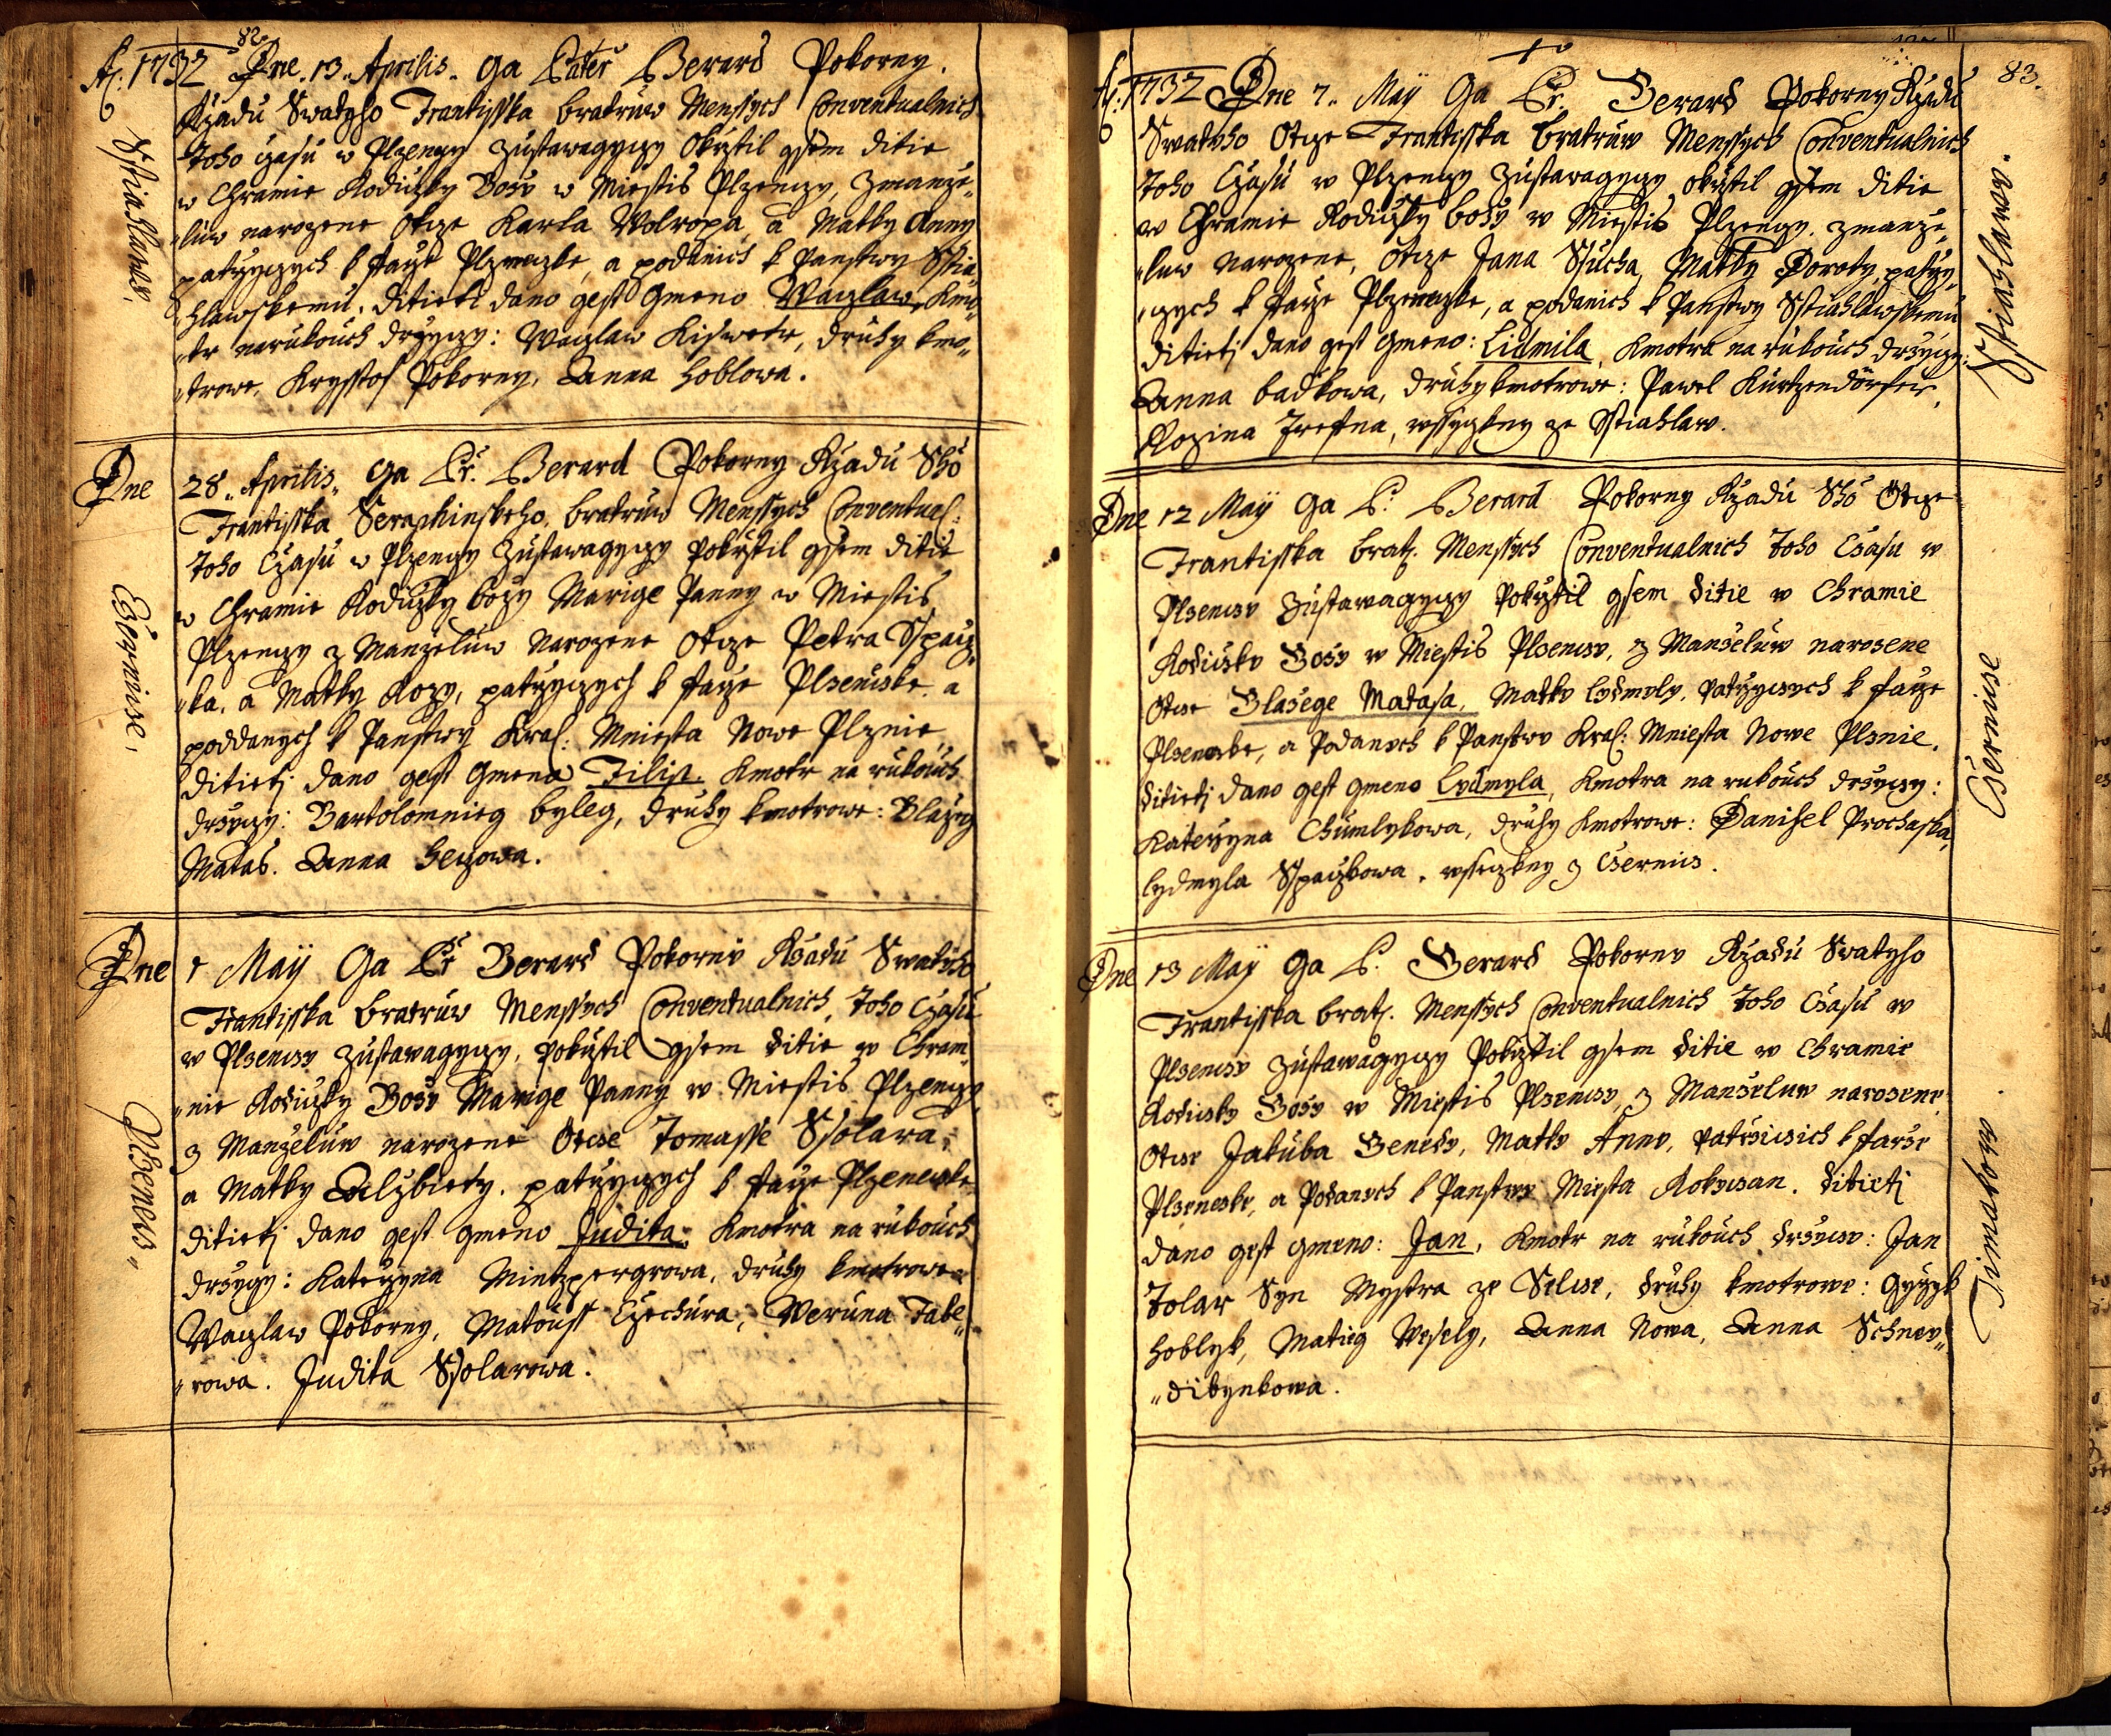 82.
A: 1732 Dne. 13. Aprilis. Ga Pater Berard Pokorny.
Rzadu Swatyho Frantisska bratruw Menssych Conventualnich
toho czasu w Plzenczy zustawagyczy Okrztil gsem ditie
w Chramie Rodiczky Bozy w Miestis Plzenczy, zmanze„
„luw narozene Otcze Karla Wolropa, a Matky Anny
patrzyczych k farze Plzenezke, a podanich k Panstwy Sstia„
„hlawskemu. ditieti dano gest Gmeno Waczlaw, Kmo„
„tr narukouch drzyczy: Waczlaw Kiswetr, druhy kmo„
„trowe, Krysstof Pokorny, Anna Hoblowa.
Sstiahlaw.
Dne 28. Aprilis. Ga Pr. Berard Pokorny Rzadu Sho
Frantisska Seraphinskeho, bratruw Menssych Conventual:
toho Czasu w Plzenczy Zustawagyczy Pokrztil gsem ditie
w Chramie Rodiczky bozy Marige Panny w Miestis
Plzenczy z Manzeluw Narozene Otcze Petra Sspacz„
„ka, a Matky Rozy, patrzyczych k farze Plzenizke. a
poddanych k Panstwy Kral: Mniesta Nowe Plznie
ditieti dano gest Gmeno Filip. Kmotr na rukouch
drzyczy: Bartolomnieg byleg, druhy kmotrowe: Blazeg
Matas. Anna heczowa.
Czernicze.
Dne 1 Maÿ Ga Pr Berard Pokorny Rzadu Swatyho
Frantisska bratruw Menssych Conventualnich, toho Czasu
w Plzenczy zustawagyczy, pokrztil gsem ditie w Chram„
„nie Rodiczky Bozy Marige Panny w Miestis Plzenczy,
z Manzeluw narozene Otcze Tomasse Ssolara,
a Matky Alzbiety. patrzyczych k farze Plzenezke
ditieti dano gest gmeno Judita. Kmotra na rukouch
drzyczy: Katerzyna Mintzpergrowa, druhy kmotrowe
Waczlaw Pokorny, Matouss Czechura, Weruna Tabe„
„rowa. Judita Ssolarowa.
Plzenecz„
83.
A: 1732 Dne 7. Maÿ Ga Pr. Berard Pokorny Rzadu
Swatyho Otcze Frantisska bratruw Menssych Conventualnich
toho Czasu w Plzenczy zustawagyczy okrztil gsem ditie
w Chramie Rodiczky bozy w Miestis Plzenczy. zmanze„
„luw narozene, Otcze Jana Sucha, Matky Doroty, patrzy„
„czych k farze Plzenezke, a podanich k Panstwy Sstiahlawskemu
ditieti dano gest gmeno: Lidmila, Kmotra na rukouch drzyczy:
Anna badkowa, druhy kmotrowe: Pawel Kurtzendörfer,
Rozina Trefna, wssyczkny ze Sstiahlaw.
Sstiahlaw.
Dne 12 Maÿ Ga P: Berard Pokorny Rzadu Sho Otcze
Frantisska brat: Menssych Conventualnich toho Czasu w
Plzenczy Zustawagyczy Pokrztil gsem ditie w Chramie
Rodiczky Bozy w Miestis Plzenczy, z Manzeluw narozene
Otcze Blazege Matasa, Matky lydmyly, patrzyczych k farze
Plzenezke, a Podanych k Panstwy Kral: Mniesta Nowe Plznie.
ditieti dano gest gmeno Lydmyla, Kmotra na rukouch drzyczy:
Katerzyna Chumlykowa, druhy Kmotrowe: Danihel Prochaska,
lydmyla Sspaczkowa. wssiczkny z Czernicz.
Czernicze
Dne 13 Maÿ Ga P. Berard Pokorny Rzadu Swatyho
Frantisska brat: Menssych Conventualnich toho Czasu w
Plzenczy zustawagyczy Pokrztil gsem ditie w Chramie
Rodiczky Bozy w Miestis Plzenczy, z Manzeluw narozene
Otcze Jakuba Benedy, Matky Anny, patrziczich k farze
Plzenezke, a Podanych k Panstwy Miesta Rokyczan. ditieti
dano gest gmeno: Jan, Kmotr na rukouch drzyczy: Jan
Tolar Syn Mystra ze Selcze, druhy kmotrowe: Gyrzyk
hoblyk, Matieg Wesely, Anna Nowa, Anna Schney„
„dibynkowa.
Timakow.